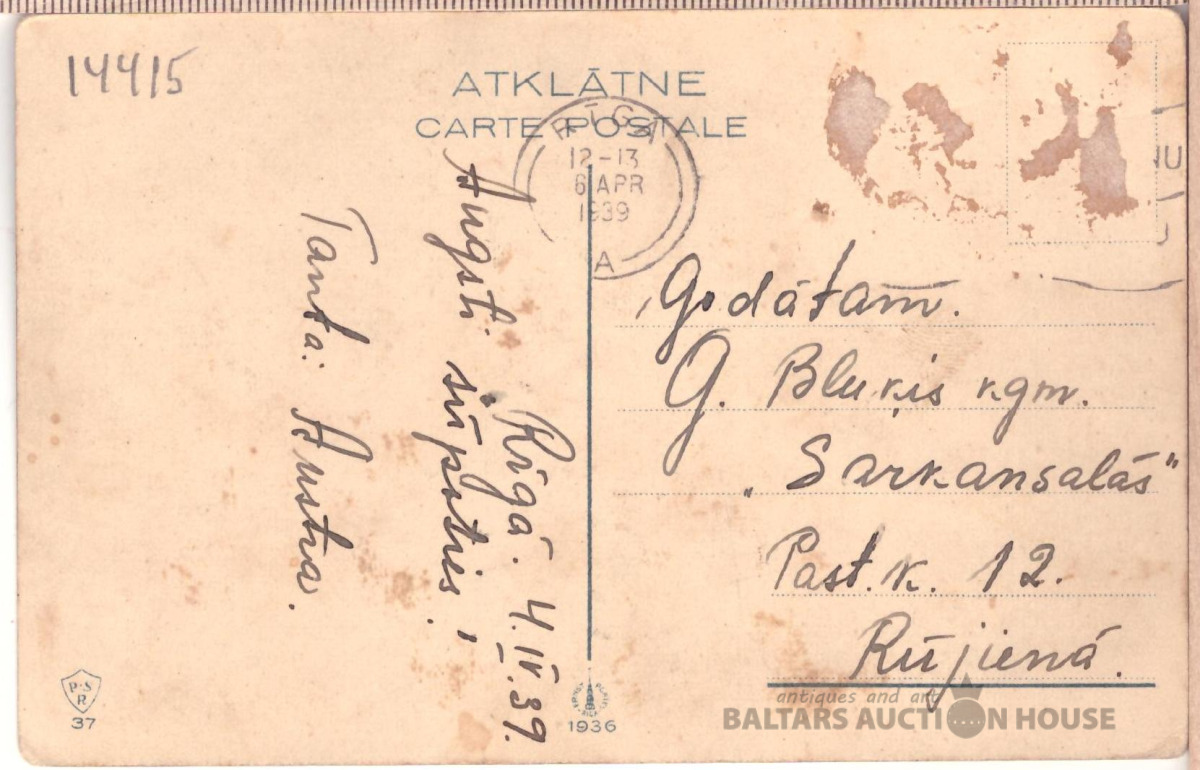 14415
ATKLĀTNE
CARTE POSTALE
RĪGA
12-13
6 APR
1939
A
Rīgā. 4.IV.39.
Augsti šūpoties!
Tanta: Austra.
Godātam.
G. Bluķis kgm.
„Sarkansalās"
Past.k. 12.
Rūjienā.
P.S
R
37
1936
antiques and art
BALTARS AUCTION HOUSE